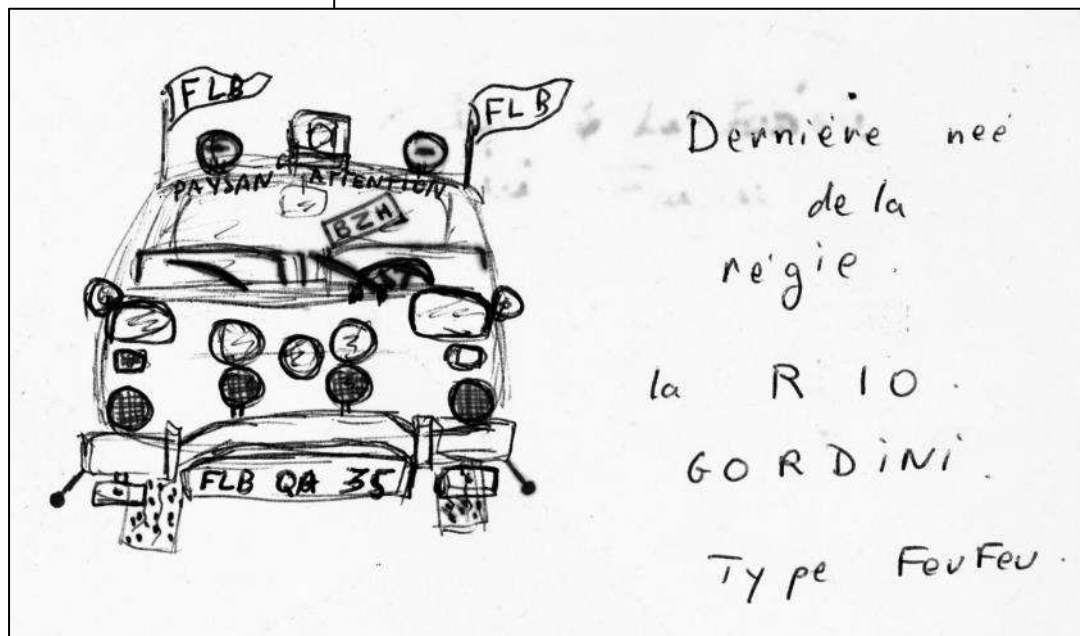 FLB
FLB
PAYSAN ATTENTION
BZH
FLB QA 35
Dernière neé
de la
régie.
la R 10.
GORDiNi.
Type FeuFeu.